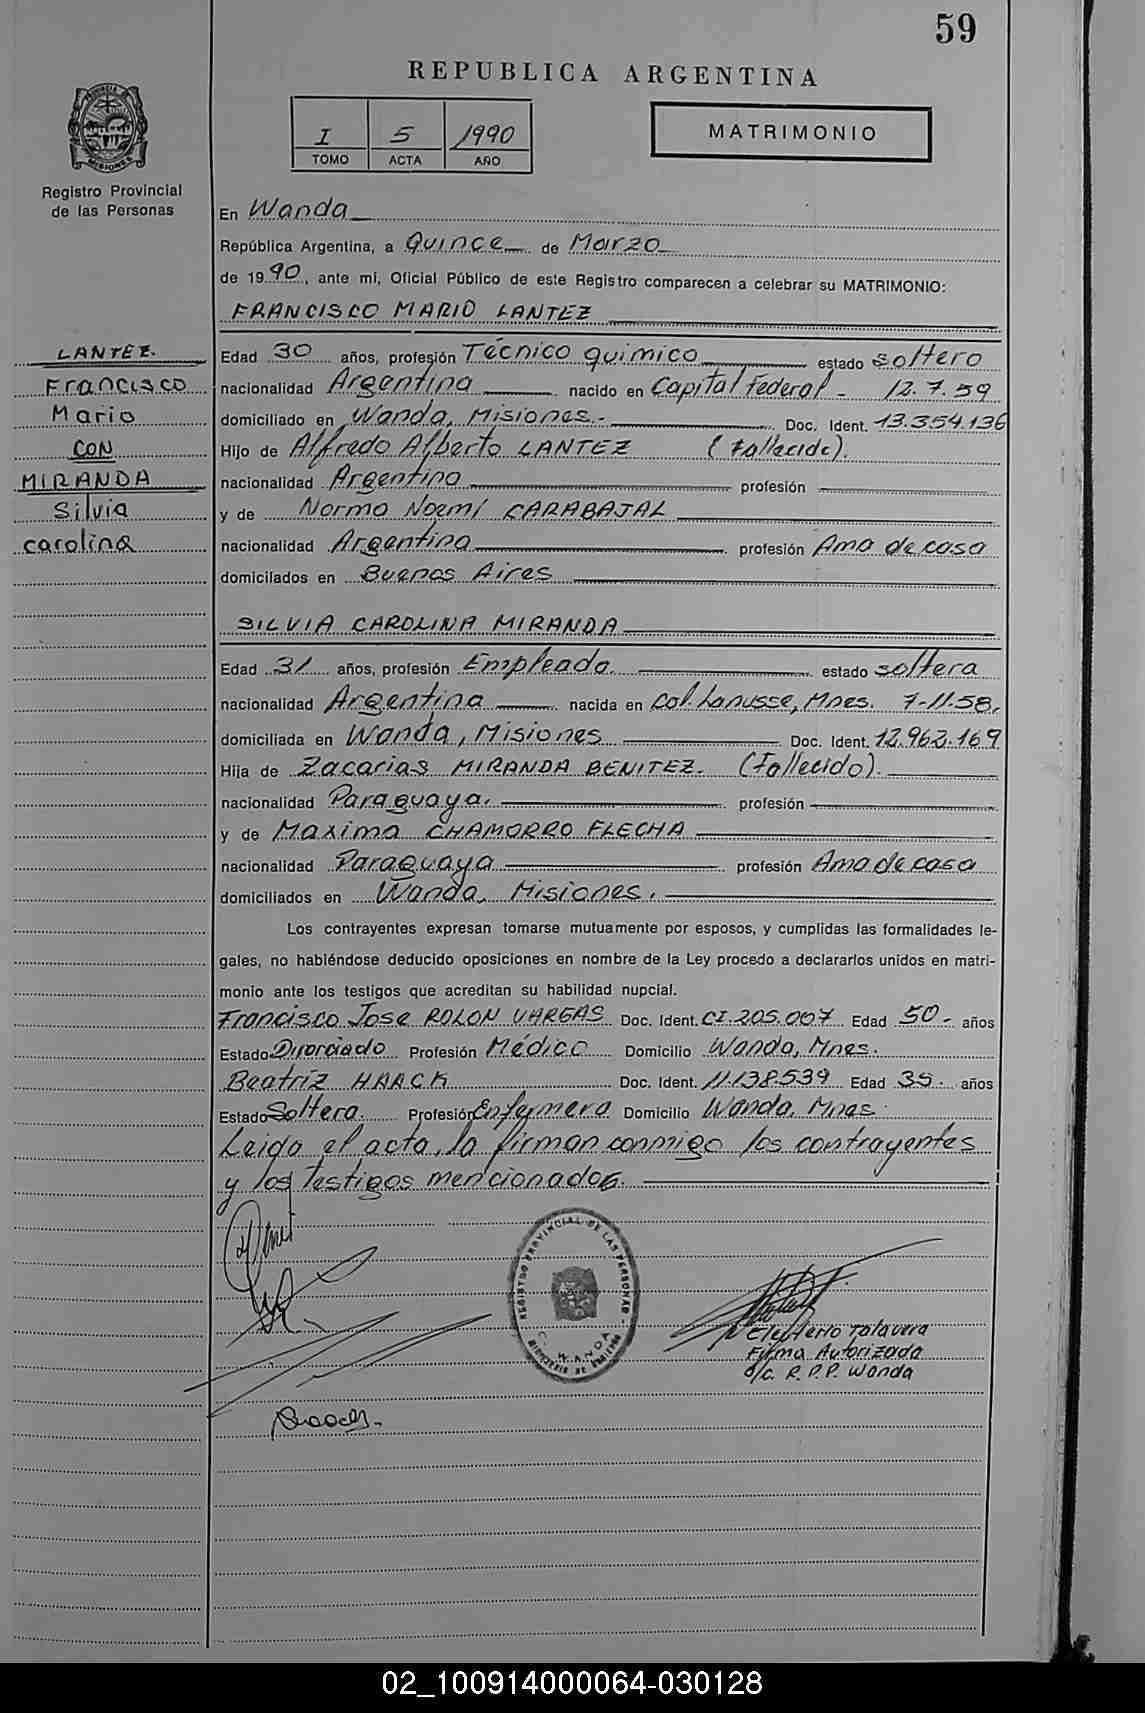 59
REPUBLICA ARGENTINA
I 5 1990
TOMO ACTA AÑO
MATRIMONIO
PROVINCIA DE MISIONES
Registro Provincial
de las Personas
En Wanda
República Argentina, a Quince de Marzo
de 1990, ante mi, Oficial Público de este Registro comparecen a celebrar su MATRIMONIO:
FRANCISCO MARIO LANTEZ
LANTEZ
Francisco
Mario
CON
MIRANDA
Silvia
carolina
Edad 30 años, profesión Técnico químico estado soltero
nacionalidad Argentina nacido en Capital Federal - 12.7.59
domiciliado en Wanda, Misiones.- Doc. Ident. 13.354.136
Hijo de Alfredo Alberto LANTEZ (Fallecido).
nacionalidad Argentina profesión
y de Norma Noemí CARABAJAL
nacionalidad Argentina profesión Ama de casa
domicilados en Buenos Aires
SILVIA CAROLINA MIRANDA
Edad 31 años, profesión Empleada. estado soltera
nacionalidad Argentina nacida en Col. Lanusse, Mnes. 7-11-58.
domiciliada en Wanda, Misiones Doc. Ident. 12.962.169
Hija de Zacarias MIRANDA BENITEZ. (Fallecido).
nacionalidad Paraguaya. profesión
y de Maxima CHAMORRO FLECHA
nacionalidad Paraguaya profesión Ama de casa
domiciliados en Wanda, Misiones.
Los contrayentes expresan tomarse mutuamente por esposos, y cumplidas las formalidades le-
gales, no habiéndose deducido oposiciones en nombre de la Ley procedo a declararlos unidos en matri-
monio ante los testigos que acreditan su habilidad nupcial.
Francisco Jose ROLON VARGAS Doc. Ident. CI.205.007 Edad 50- años
Estado Divorciado Profesión Médico Domicilio Wanda, Mnes.
Beatriz HAACK Doc. Ident. 11.138.539 Edad 35. años
Estado Soltera Profesión Enfermera Domicilio Wanda, Mnes.
Leido el acta, la firman conmigo los contrayentes
y los testigos mencionados.
REGISTRO PROVINCIAL DE LAS PERSONAS
WANDA
Eleuterio Talavera
Firma Autorizada
a/c. R.P.P. Wanda
02_100914000064-030128